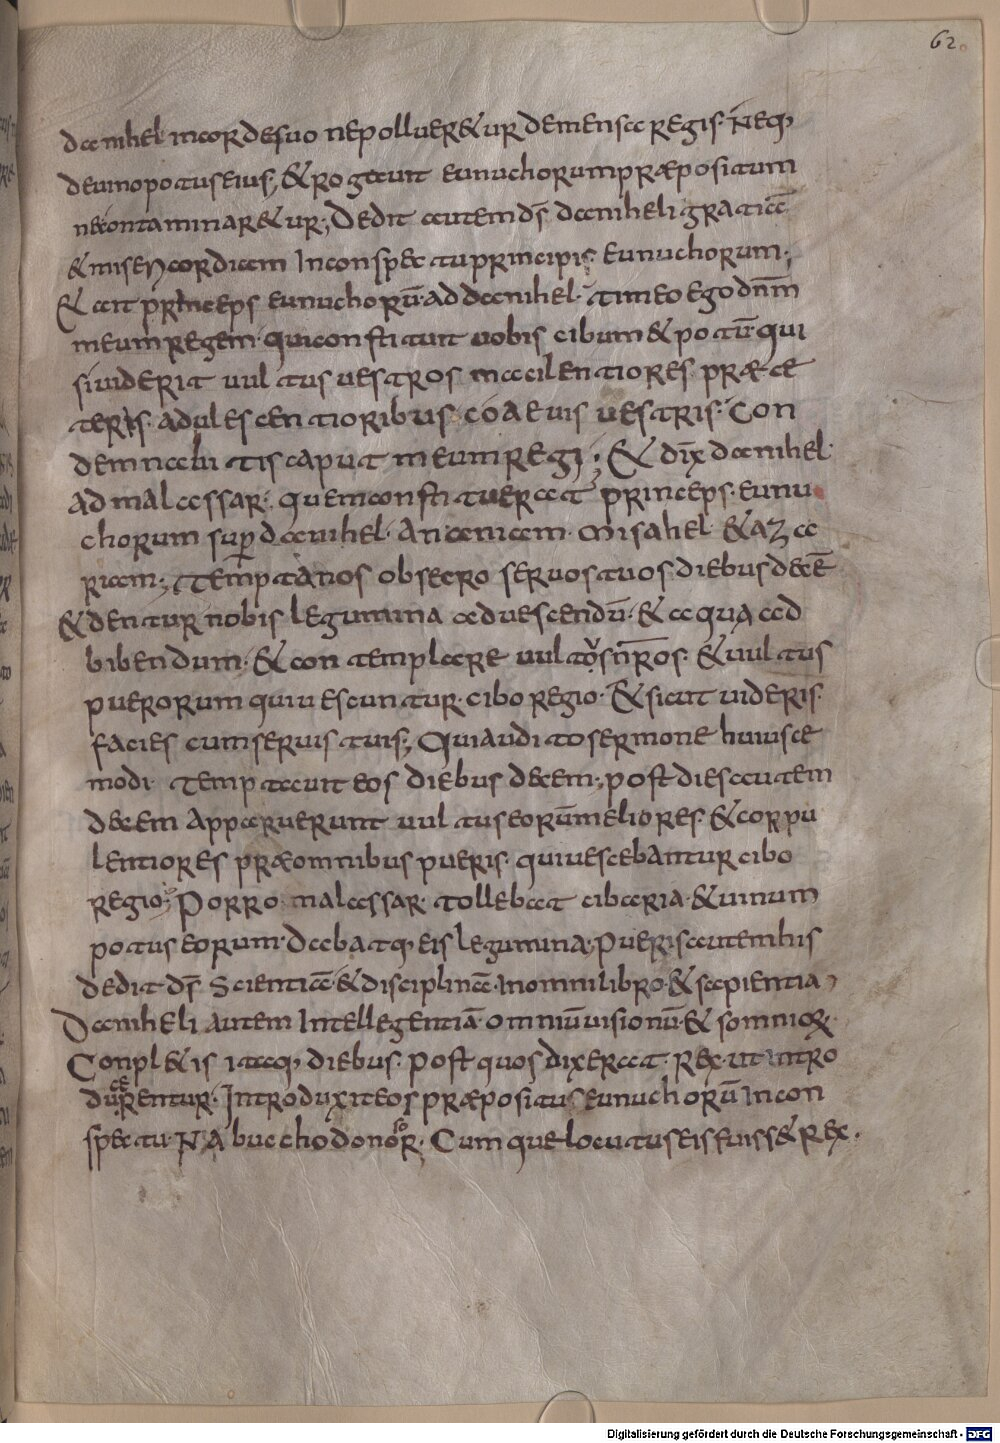 62
danihel in corde suo ne pollueretur de mensa regis. Neq;
de uino potus eius; & rogauit eunuchorum præpositum
ne contaminaretur; Dedit autem dś daniheli gratiā
& misericordiam In conspectu principis eunuchorum;
& ait princeps eunuchorū ad danihel. timeo ego dnm̄
meum regem. qui constituit uobis cibum & potū. qui
si uiderit uultus uestros macilentiores præ ce
teris adulescentioribus coaeuis uestris. Con
demnabitis caput meum regi; & dix̄ danihel
ad malassar. quem constituerat princeps eunu
chorum sup̄ danihel. Ananiam. Misahel. & aza
riam; Tempta nos obsecro seruos tuos diebus decē
& dentur nobis legumina ad uescendū. & aqua ad
bibendum. & contemplare uultos nr̄os. & uultus
puerorum qui uescuntur cibo regio. & sicut uideris
facies cum seruis tuis; Qui audito sermone huiusce
modi temptauit eos diebus decem; post dies autem
decem apparuerunt uultus eorum̄ meliores & corpu
lentiores præ omnibus pueris. qui uescebantur cibo
regio; Porro malassar tollebat cibaria. & uinum
potus eorum. Dabatq; eis legumina; Pueris autem his
dedit dś Scientiā & disciplinā In omni libro. & sapientia
Daniheli autem Intellegentiā omniū uisionū & somnioꝝ.
Conpletis itaq; diebus. post quos dixerat rex. ut intro
ducerentur. Introduxit eos præpositus eunuchorū In con
spectu Nabuchodonosor. Cumque locutus eis fuisset rex.
Digitalisierung gefördert durch die Deutsche Forschungsgemeinschaft - DFG